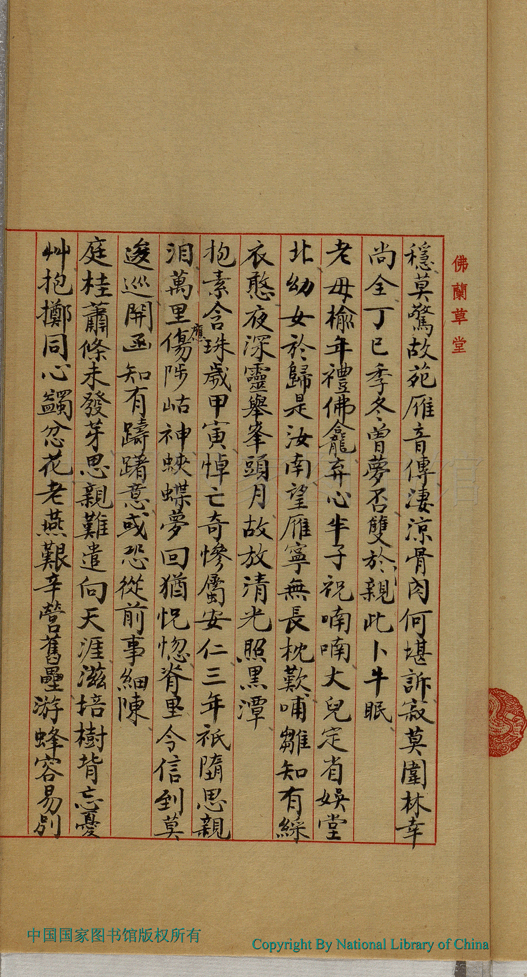 佛蘭草堂
穩莫驚故苑雁音傳淒涼骨肉何堪訴寂莫園林幸
尚全丁巳季冬曾夢否雙於親此卜牛眠
老母榆年禮佛龕弃心半子祝喃喃大兒定省娛堂
北幼女於歸是汝南望雁寧無長枕歎哺雛知有綵
衣憨夜深靈舉峯頭月故放清光照黑潭
抱素含珠歲甲寅悼亡奇慘屬安仁三年祇隋思親
淚萬里應傷陟岵神蛺蝶夢回猶怳惚脊令信到莫
逡巡開函知有躊躇意或恐從前事細陳
庭桂蕭條未發芽思親難遣向天涯滋培樹背忘憂
艸抱擲同心蠲忿花老燕艱辛營舊壘游蜂容易別
中国国家图书馆版权所有
Copyright By National Library of China